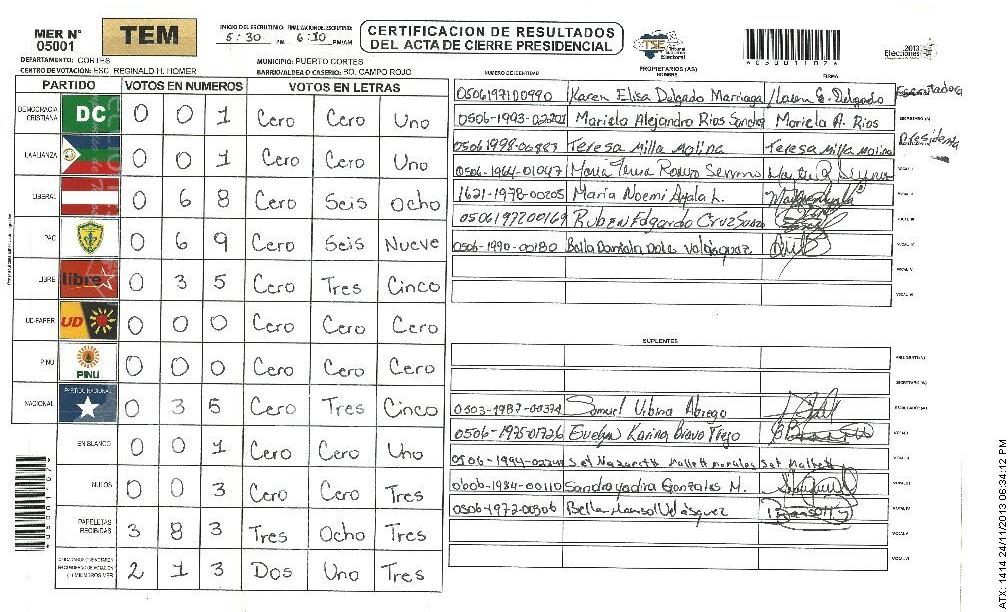 MER N° 05001
TEM
INICIO DEL ESCRUTINIO: FINALIZACION DEL ESCRUTINIO:
5:30 PM 6:10 PM/AM
CERTIFICACION DE RESULTADOS
DEL ACTA DE CIERRE PRESIDENCIAL
TSE Tribunal Supremo Electoral
2013 Elecciones
DEPARTAMENTO: CORTES
MUNICIPIO: PUERTO CORTES
CENTRO DE VOTACION: ESC. REGINALD H. HOMER
BARRIO/ALDEA O CASERIO: BO. CAMPO ROJO
PARTIDO VOTOS EN NUMEROS VOTOS EN LETRAS
DEMOCRACIA CRISTIANA DC 0 0 1 Cero Cero Uno
LA ALIANZA 0 0 1 Cero Cero Uno
LIBERAL 0 6 8 Cero Seis Ocho
PAC 0 6 9 Cero Seis Nueve
LIBRE libre 0 3 5 Cero Tres Cinco
UD-FAPER UD 0 0 0 Cero Cero Cero
PINU PINU 0 0 0 Cero Cero Cero
NACIONAL PARTIDO NACIONAL 0 3 5 Cero Tres Cinco
EN BLANCO 0 0 1 Cero Cero Uno
NULOS 0 0 3 Cero Cero Tres
PAPELETAS RECIBIDAS 3 8 3 Tres Ocho Tres
2 1 3 Dos Uno Tres
NUMERO DE IDENTIDAD PROPIETARIOS (AS) NOMBRE FIRMA
0506197100990 Karen Elisa Delgado Marriaga Karen E. Delgado Escrutadora
0506-1993-02201 Mariela Alejandra Rios Sancha Mariela A. Rios SECRETARIO (A)
0506 1998-00883 Teresa Milla Molina Teresa Milla Molina Presidenta
0506-1964-01047 Maria
1621-1978-00205 Maria Noemi Ayala L.
0506197200169 Ruben Edgardo Cruz
0506-1990-00180
VOCAL V
VOCAL VI
SUPLENTES
PRESIDENTE (A)
SECRETARIO (A)
0503-1987-00374 Samuel Urbina Abrego ESCRUTADOR (A)
0506-1975-01726 Evelyn Karina Bravo Trejo VOCAL I
VOCAL II
0606-1984-00110 Sandra yadira Gonzales M. VOCAL III
0506-1972-00306 Bella Marisol Velásquez VOCAL IV
VOCAL V
VOCAL VI
ATX: 1414 24/11/2013 06:34:12 PM